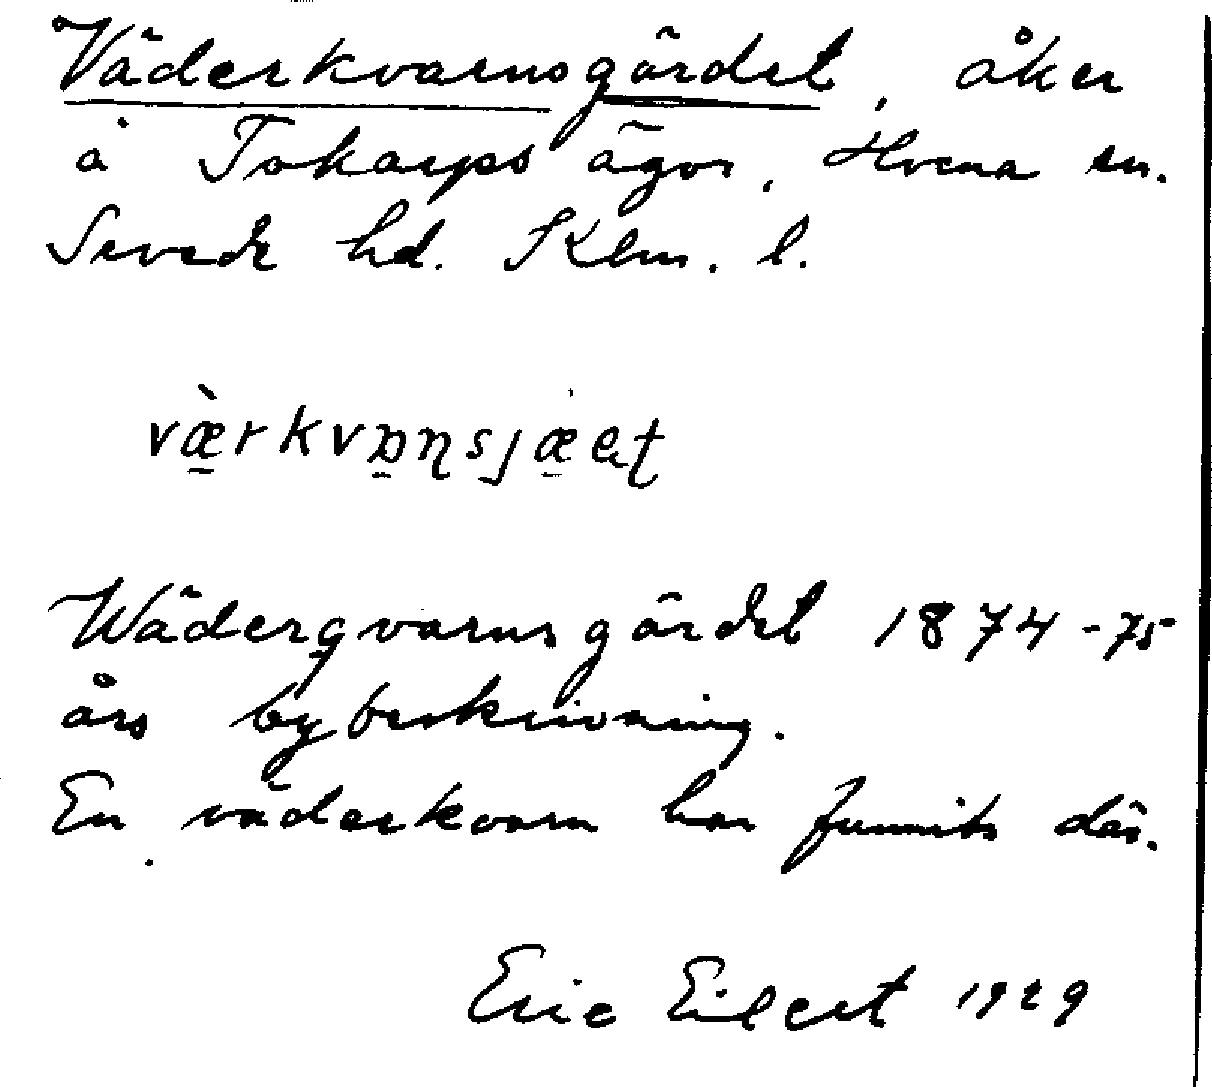 Väderkvarnsgärdet, åker
å Tokarps ägor, Hvena sn.
Sevede hd. Klm. l.
Wäderqvarnsgärdet 1874-75
års bybeskrivning.
En väderkvarn har funnits där.
Eric Eilert 1929